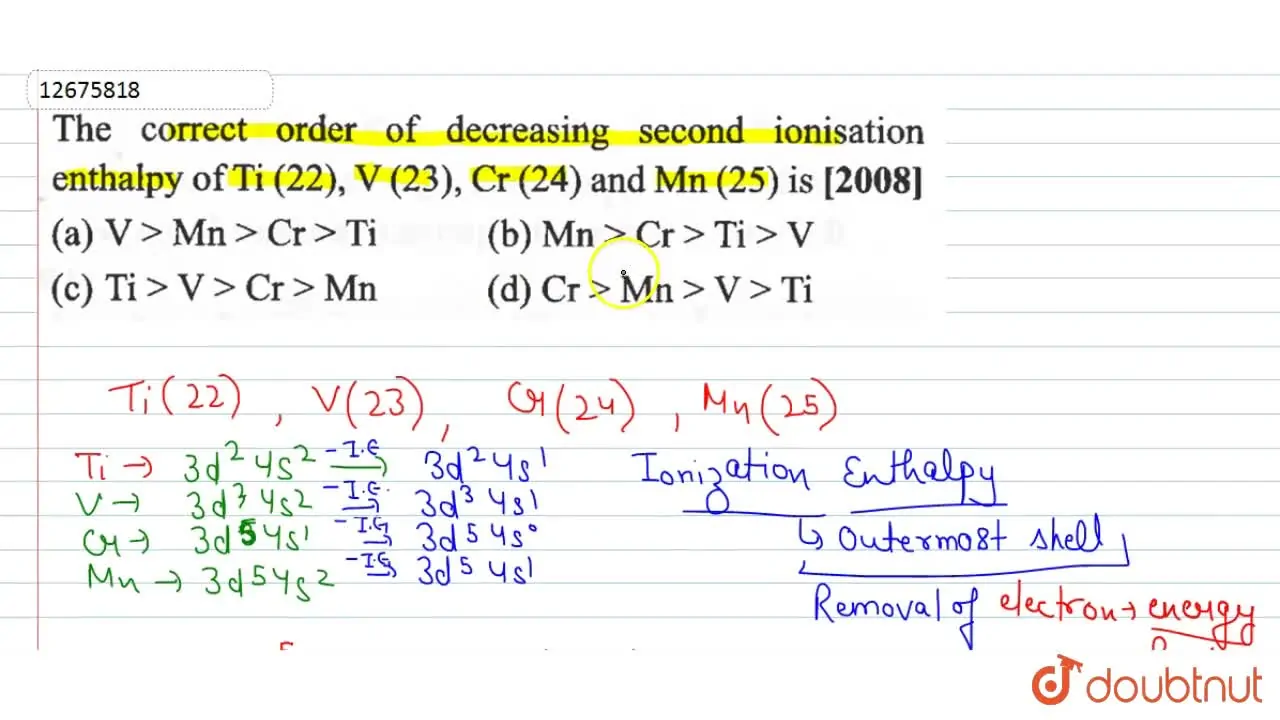 12675818
The correct order of decreasing second ionisation
enthalpy of Ti (22), V (23), Cr (24) and Mn (25) is [2008]
(a) V > Mn > Cr > Ti (b) Mn > Cr > Ti > V
(c) Ti > V > Cr > Mn (d) Cr > Mn > V > Ti
Ti(22), V(23), Cr(24), Mn(25)
Ti → 3d² 4s² –I.E → 3d² 4s¹
V → 3d³ 4s² –I.E. → 3d³ 4s¹
Cr → 3d⁵ 4s¹ –I.E → 3d⁵ 4s⁰
Mn → 3d⁵ 4s² –I.E → 3d⁵ 4s¹
Ionization Enthalpy
↳ Outermost shell
Removal of electron → energy
doubtnut